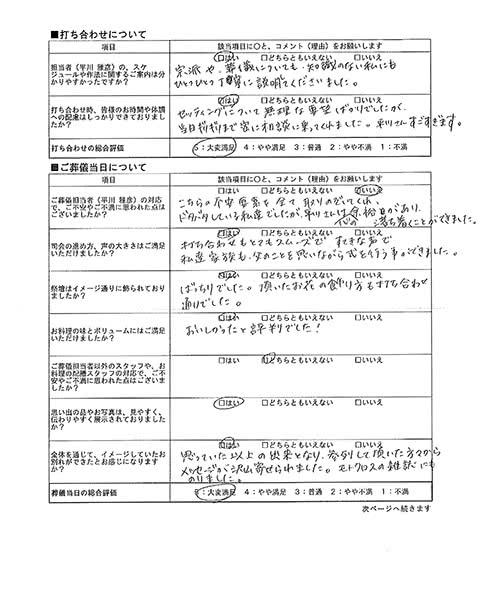 ■打ち合わせについて
項目
該当項目に○と、コメント（理由）をお願いします
担当者《平川 雅彦》の、スケ
ジュールや作法に関するご案内は分
かりやすかったですか？
□はい □どちらともいえない □いいえ
宗派や、葬儀についても知識のない私にも
ひとつひとつ丁寧に説明くださいました。
打ち合わせ時、皆様のお時間や体調
への配慮はしっかりできておりました
か？
□はい □どちらともいえない □いいえ
セッティングについて無理な要望ばかりでしたが、
当日ギリギリまで密に相談に乗ってくれました。平川さんすごすぎます。
打ち合わせの総合評価
5：大変満足 4：やや満足 3：普通 2：やや不満 1：不満
■ご葬儀当日について
項目
該当項目に○と、コメント（理由）をお願いします
ご葬儀担当者《平川 雅彦》の対応
で、ご不安やご不満に思われた点は
ございましたか？
□はい □どちらともいえない □いいえ
こちらの不安要素を全て取りのぞいてくれ、
ドタバタしている私達でしたが、平川さんは余裕があり、
落ち着くことができました。
司会の進め方、声の大きさはご満足
いただけましたか？
□はい □どちらともいえない □いいえ
打ち合わせもとてもスムーズで すてきな声で
私達家族も、父のことを思いながら式を行う事ができました。
祭壇はイメージ通りに飾られており
ましたか？
□はい □どちらともいえない □いいえ
ばっちりでした。頂いたお花の飾り方も打ち合わせ
通りでした。
お料理の味とボリュームにはご満足
いただけましたか？
□はい □どちらともいえない □いいえ
おいしかったと評判でした！
ご葬儀担当者以外のスタッフや、お
料理の配膳スタッフの対応で、ご不
安やご不満に思われた点はございま
したか？
□はい □どちらともいえない □いいえ
思い出の品やお写真は、見やすく、
伝わりやすく展示されておりました
か？
□はい □どちらともいえない □いいえ
全体を通じて、イメージしていたお
別れができたとお感じになります
か？
□はい □どちらともいえない □いいえ
思っていた以上の出来となり、参列して頂いた方々から
メッセージが沢山寄せられました。モトクロスの雑誌にも
のりました。
葬儀当日の総合評価
5：大変満足 4：やや満足 3：普通 2：やや不満 1：不満
次ページへ続きます